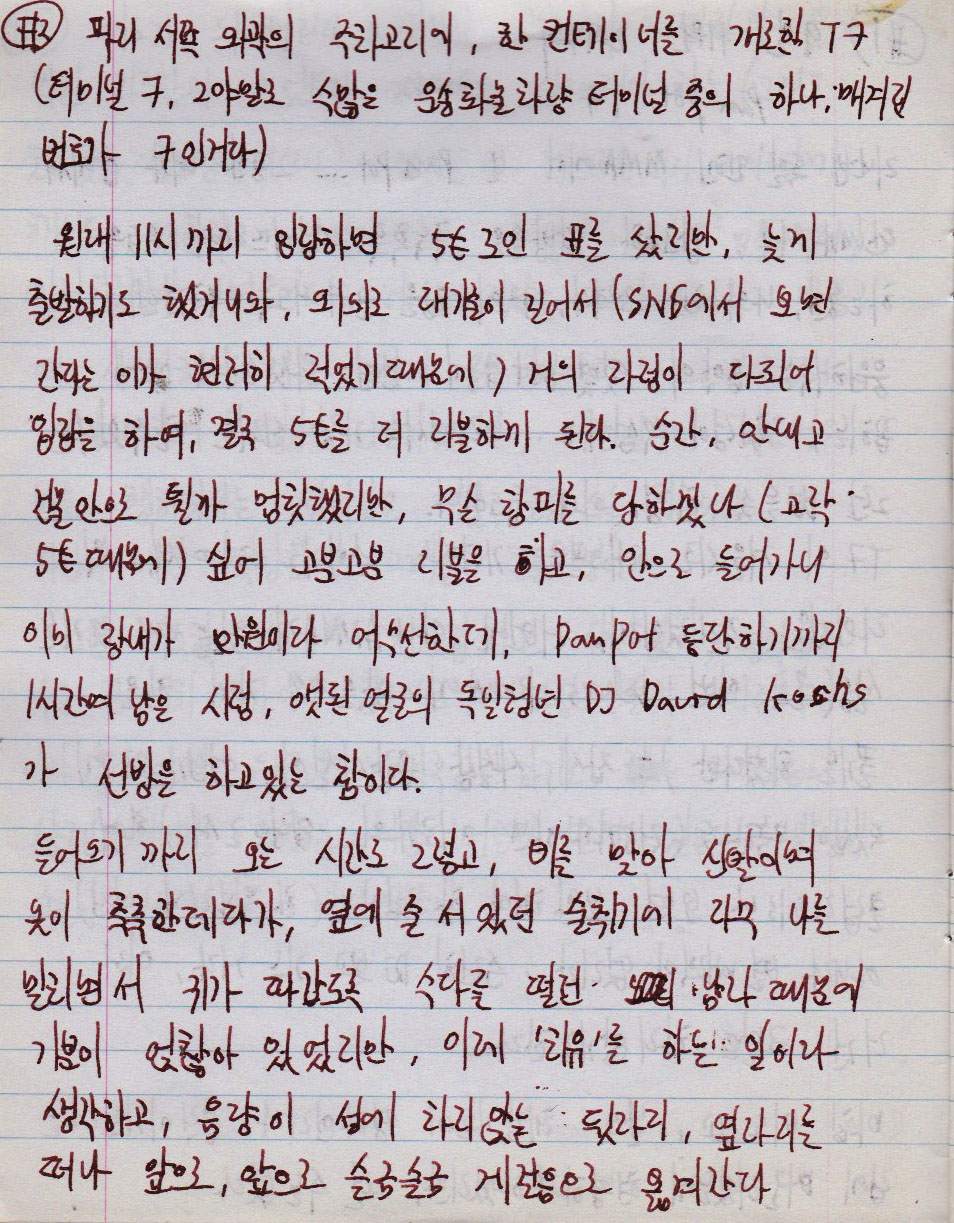 #3 파리 서쪽 외곽의 주차고리에, 한 컨테이너를 개조한 T7
(터미널 7, 그야말로 수많은 운송화물차량 터미널 중의 하나, 매겨진
번호가 7인거다)
원래 11시까지 입장하면 5€ 로인 표를 샀지만, 늦게
출발하기도 했거니와, 의외로 대기줄이 길어서 (SNS에서 오면
간다는 이가 현저히 적었기때문에) 거의 자정이 다되어
입장을 하여, 결국 5€를 더 지불하게 된다. 순간, 안내고
걍 안으로 튈까 멈칫했지만, 무슨 창피를 당하겠나 (고작
5€ 때문에) 싶어 고분고분 지불을 하고, 안으로 들어가니
이미 장내가 만원이다 어쑥선한디, PanPot 등단하기까지
1시간여 남은 시점, 앳된 얼굴의 독일청년 DJ David
가 선방을 하고있는 참이다.
들어오기 까지 오는 시간도 그렇고, 비를 맞아 신발이며
옷이 축축한데다가, 옆에 줄 서 있던 술취기에 자꾸 나를
밀치면서 귀가 따갑도록 수다를 떨던 남자 때문에
기분이 언짢아 있었지만, 이제 '치유'를 하는 일이라
생각하고, 음량이 성에 차지않는 뒷자리, 옆자리를
떠나 앞으로, 앞으로 슬금슬금 게걸음으로 옮겨간다